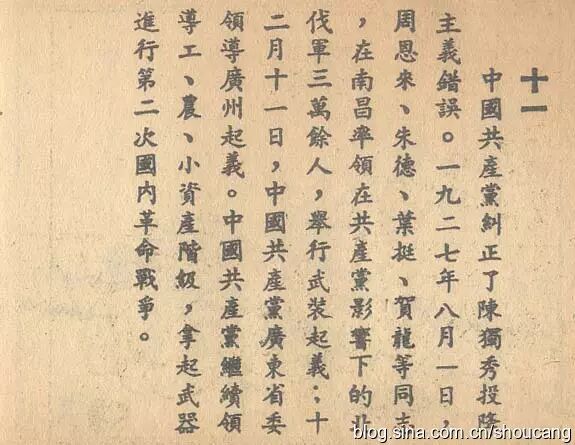 十一
中國共產黨糾正了陳獨秀投降
主義錯誤。一九二七年八月一日，
周恩來、朱德、葉挺、賀龍等同志
，在南昌率領在共產黨影響下的北
伐軍三萬餘人，舉行武裝起義；十
二月十一日，中國共產黨廣東省委
領導廣州起義。中國共產黨繼續領
導工、農、小資產階級，拿起武器
進行第二次國內革命戰爭。
blog.sina.com.cn/shoucang